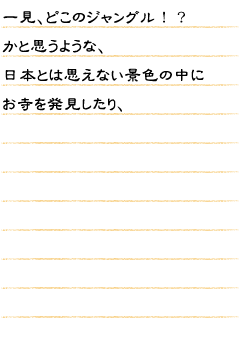 一見、どこのジャングル！？
かと思うような、
日本とは思えない景色の中に
お寺を発見したり、